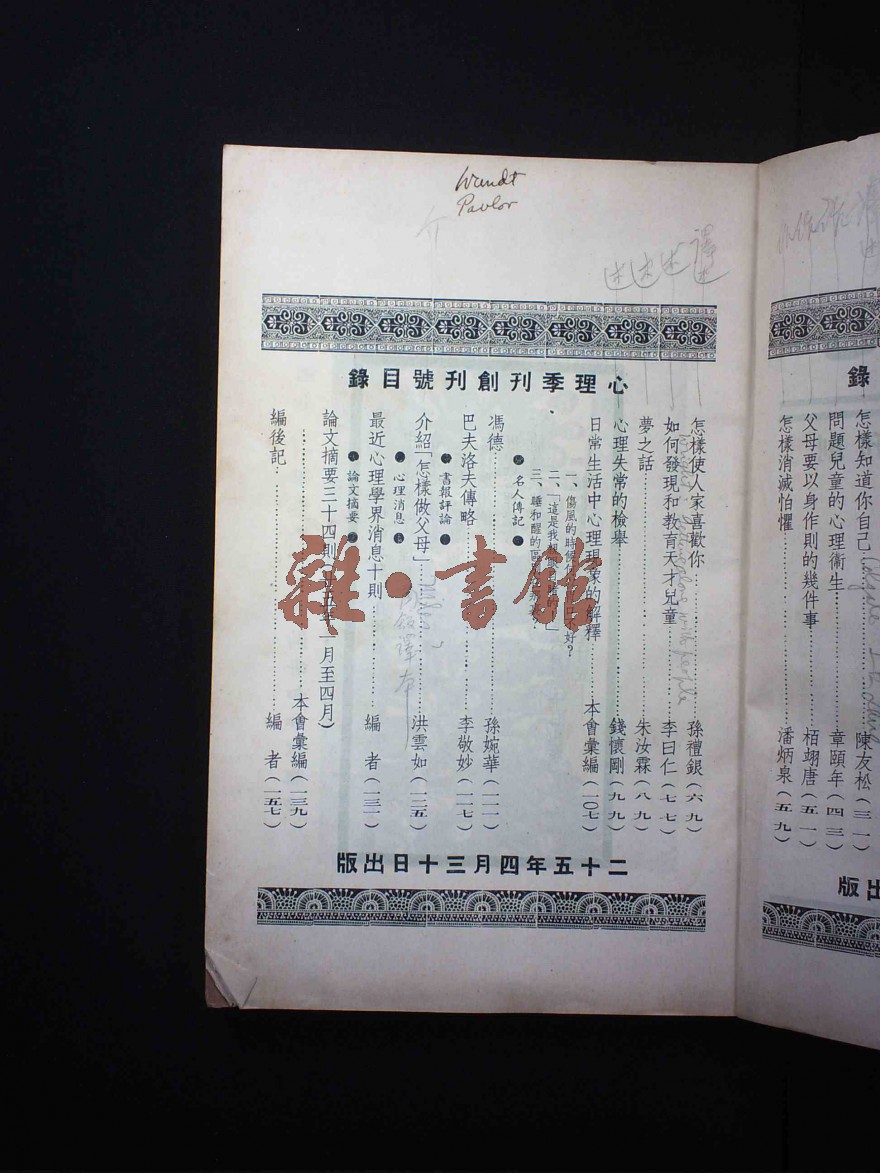 Wundt
Pavlov
介
述
述
述
譯述
心理季刊創刊號目錄
怎樣使人家喜歡你……孫禮銀(六九)
如何發現和教育天才兒童……李曰仁(七七)
夢之話……朱汝霖(八九)
心理失常的檢舉……錢懷剛(九九)
日常生活中心理現象的解釋……本會彙編(一〇七)
一、傷風的時候
好?
二、「這是我
」
三、睡和醒的
名人傳記
馮德……孫婉華(一一一)
巴夫洛夫傳略……李敬妙(一一七)
書報評論
介紹「怎樣做父母」……洪雲如(一二五)
心理消息
最近心理學界消息十則……編者(一三一)
論文摘要
論文摘要三十四則
月至四月)
……本會彙編(一三九)
編後記……編者(一五七)
二十五年四月三十日出版
雜·書館
錄
怎樣知道你自己……陳友松(三一)
問題兒童的心理衞生……章頤年(四三)
父母要以身作則的幾件事……栢翊唐(五一)
怎樣消滅怕懼……潘炳泉(五九)
出版